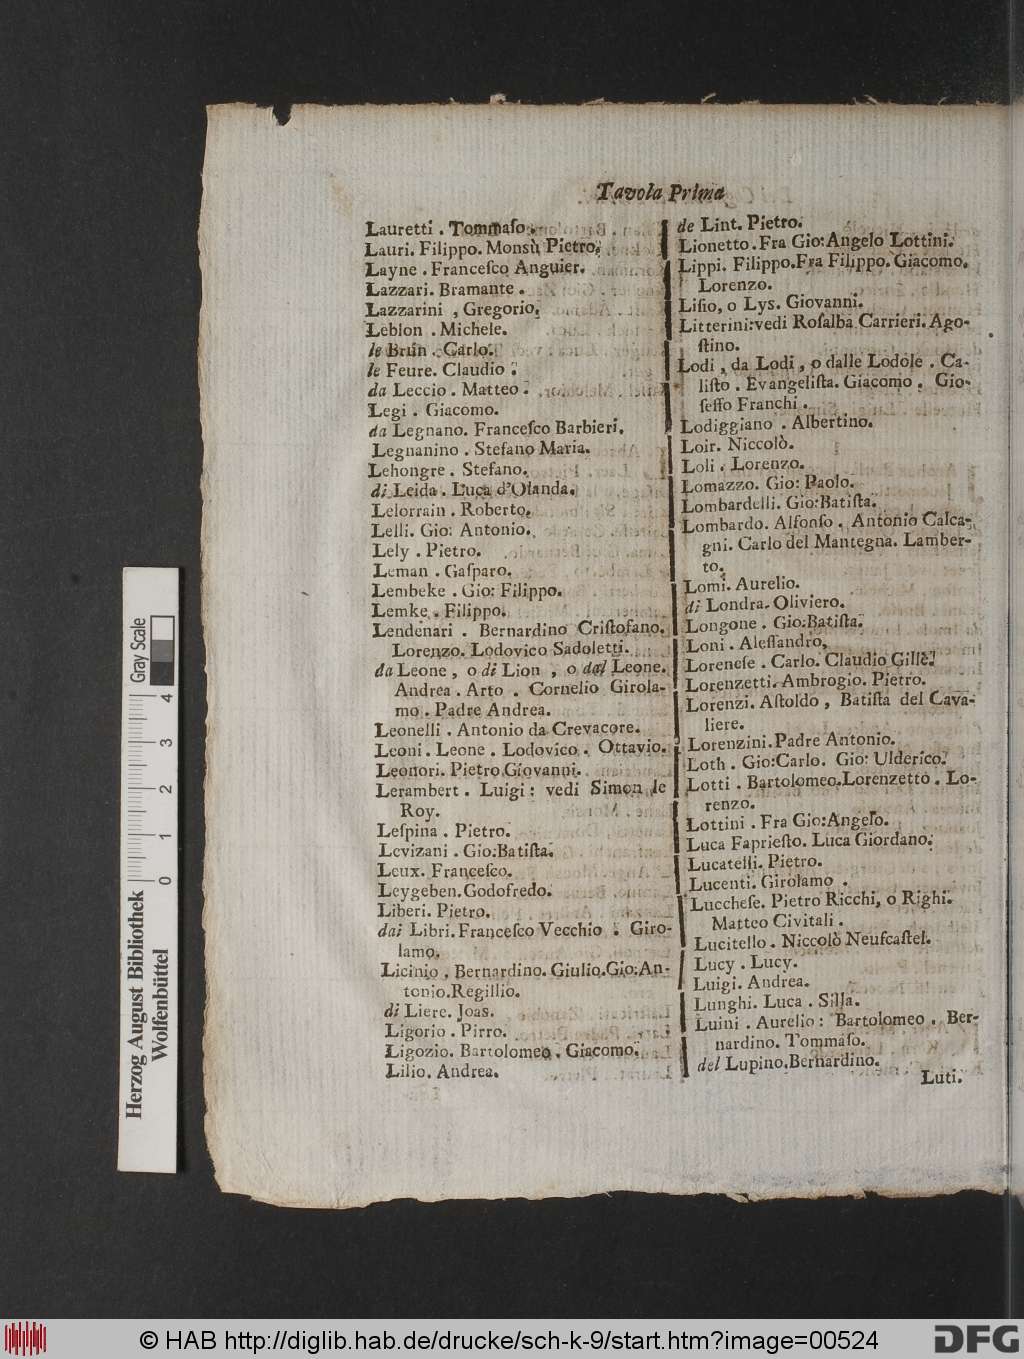 Tavola Prima
Lauretti . Tommaſo .
Lauri. Filippo. Monsù Pietro.
Layne . Franceſco Anguier.
Lazzari. Bramante .
Lazzarini , Gregorio.
Leblon . Michele.
le Brun . Carlo.
le Feure. Claudio .
da Leccio . Matteo .
Legi . Giacomo.
da Legnano. Franceſco Barbieri.
Legnanino . Stefano Maria.
Lehongre . Stefano.
di Leida . Luca d'Olanda.
Lelorrain . Roberto.
Lelli. Gio: Antonio.
Lely . Pietro.
Leman . Gaſparo.
Lembeke . Gio: Filippo.
Lemke . Filippo.
Lendenari . Bernardino Criſtofano.
Lorenzo. Lodovico Sadoletti.
da Leone , o di Lion , o dal Leone.
Andrea . Arto . Cornelio Girola-
mo . Padre Andrea.
Leonelli . Antonio da Crevacore.
Leoni . Leone . Lodovico . Ottavio.
Leonori. Pietro Giovanni.
Lerambert . Luigi : vedi Simon le
Roy.
Leſpina . Pietro.
Levizani . Gio:Batiſta.
Leux. Franceſco.
Leygeben. Godofredo.
Liberi. Pietro.
dai Libri. Franceſco Vecchio . Giro-
lamo.
Licinio . Bernardino. Giulio. Gio: An-
tonio. Regillio.
di Liere. Joas.
Ligorio . Pirro.
Ligozio. Bartolomeo . Giacomo.
Lilio. Andrea.
de Lint. Pietro.
Lionetto . Fra Gio: Angelo Lottini.
Lippi. Filippo. Fra Filippo. Giacomo.
Lorenzo.
Liſio, o Lys. Giovanni.
Litterini: vedi Roſalba Carrieri. Ago-
ſtino.
Lodi , da Lodi , o dalle Lodole . Ca-
liſto . Evangeliſta. Giacomo . Gio-
ſeffo Franchi .
Lodiggiano . Albertino.
Loir. Niccolò.
Loli . Lorenzo.
Lomazzo. Gio: Paolo.
Lombardelli. Gio:Batiſta.
Lombardo. Alfonſo . Antonio Calca-
gni. Carlo del Mantegna. Lamber-
to.
Lomi. Aurelio.
di Londra. Oliviero.
Longone . Gio:Batiſta.
Loni . Aleſſandro.
Loreneſe . Carlo. Claudio Gillè.
Lorenzetti. Ambrogio. Pietro.
Lorenzi. Aſtoldo , Batiſta del Cava-
liere.
Lorenzini. Padre Antonio.
Loth . Gio:Carlo. Gio: Ulderico.
Lotti . Bartolomeo. Lorenzetto . Lo-
renzo.
Lottini . Fra Gio: Angelo.
Luca Faprieſto. Luca Giordano.
Lucatelli. Pietro.
Lucenti. Girolamo .
Luccheſe. Pietro Ricchi, o Righi.
Matteo Civitali .
Lucitello . Niccolò Neufcaſtel.
Lucy . Lucy.
Luigi. Andrea.
Lunghi. Luca . Silla.
Luini . Aurelio : Bartolomeo . Ber-
nardino. Tommaſo.
del Lupino. Bernardino.
Luti.
Herzog August Bibliothek
Wolfenbüttel
Gray Scale
0 1 2 3 4
© HAB http://diglib.hab.de/drucke/sch-k-9/start.htm?image=00524
DFG